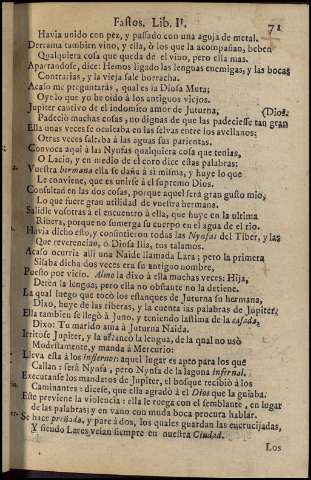 Fastos. Lib. II.
71
Havia unido con pez, y passado con una aguja de metal.
Derrama tambien vino, y ella, ò los que la acompañan, beben
Qualquiera cosa que queda de el vino, pero ella mas.
Apartandose, dice: Hemos ligado las lenguas enemigas, y las bocas
Contrarias, y la vieja sale borracha.
Acaso me preguntaràs, qual es la Diosa Muta;
Oye lo que yo he oido à los antiguos viejos.
Jupiter cautivo de el indomito amor de Juturna, (Dios.
Padeciò muchas cosas, no dignas de que las padeciesse tan gran
Ella unas veces se ocultaba en las selvas entre los avellanos;
Otras veces saltaba à las aguas sus parientas.
Convoca aqui à las Nynfas qualquiera cosa que tenias,
O Lacio, y en medio de el coro dice estas palabras:
Vuestra hermana ella se daña à si misma, y huye lo que
Le conviene, que es unirse à el supremo Dios.
Consultad en las dos cosas, porque aquel serà gran gusto mio,
Lo que fuere gran utilidad de vuestra hermana.
Salidle vosotras à el encuentro à ella, que huye en la ultima
Ribera, porque no sumerja su cuerpo en el agua de el rio.
Havia dicho esto, y consintieron todas las Nynfas del Tiber, y las
Que reverencian, ò Diosa Ilia, tus talamos.
Acaso ocurria alli una Naide llamada Lara; pero la primera
Silaba dicha dos veces era su antiguo nombre,
Puesto por vicio. Almo la dixo à ella muchas veces: Hija,
Deten la lengua; pero ella no obstante no la detiene.
La qual luego que tocò los estanques de Juturna su hermana,
Dixo, huye de las riberas, y la cuenta las palabras de Jupiter.
Ella tambien se llegò à Juno, y teniendo lastima de la casada,
Dixo: Tu marido ama à Juturna Naida.
Irritòse Jupiter, y la arrancò la lengua, de la qual no usò
Modestamente, y manda à Mercurio:
Lleva esta à los infiernos: aquel lugar es apto para los que
Callan: serà Nynfa, pero Nynfa de la laguna infernal.
Executanse los mandatos de Jupiter, el bosque recibiò à los
Caminantes: dicese, que ella agradò à el Dios que la guiaba.
Este previene la violencia: ella le ruega con el semblante, en lugar
de las palabras; y en vano con muda boca procura hablar.
Se hace preñada, y pare à dos, los quales guardan las encrucijadas,
Y siendo Lares velan siempre en nuestra Ciudad.
Los